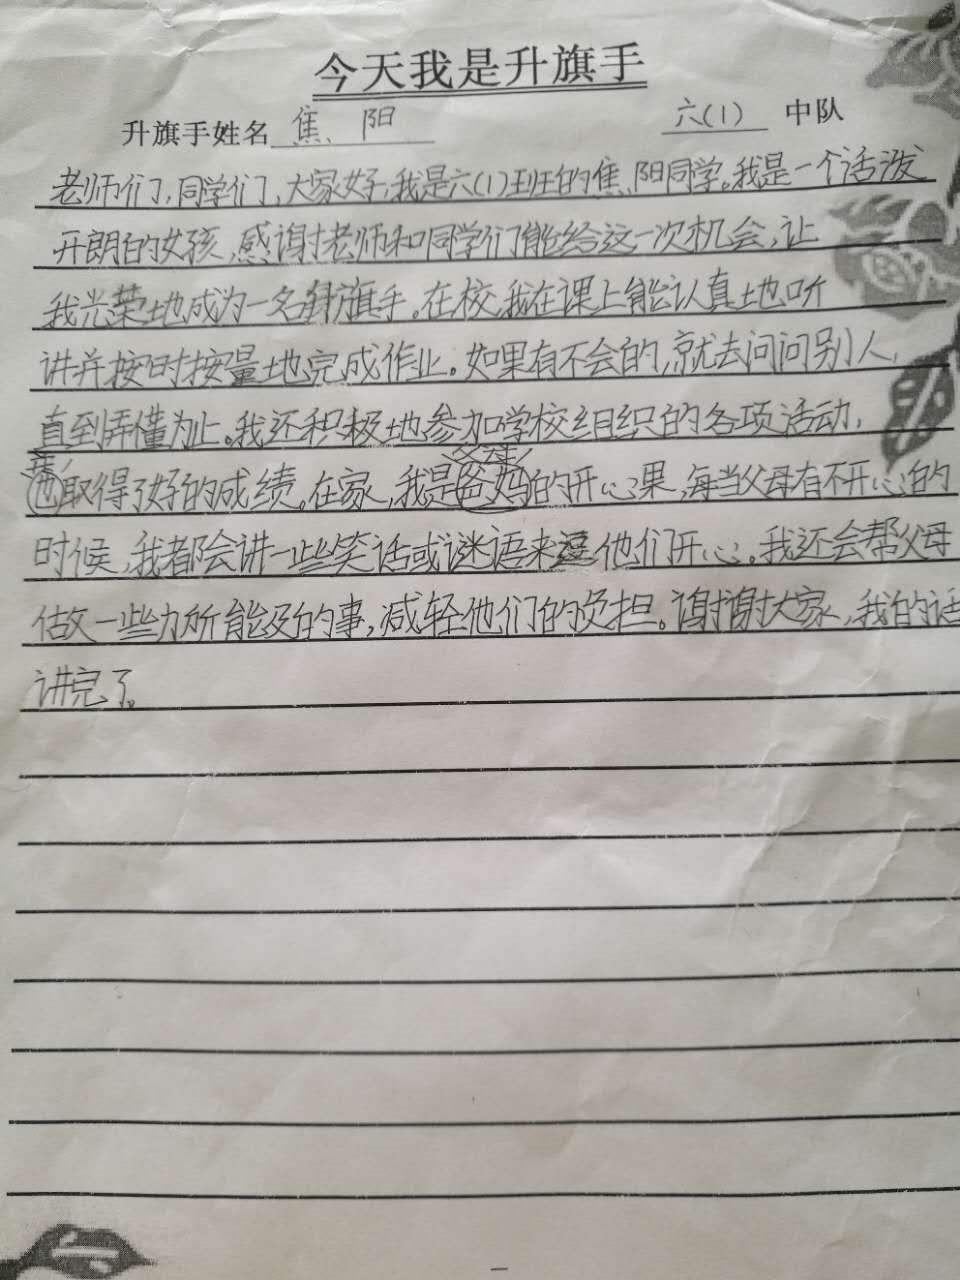 今天我是升旗手
升旗手姓名 焦阳 六(1) 中队
老师们,同学们,大家好,我是六(1)班的焦阳同学。我是一个活泼
开朗的女孩,感谢老师和同学们能给这一次机会,让
我光荣地成为一名升旗手。在校,我在课上能认真地听
讲并按时按量地完成作业。如果有不会的,就去问问别人,
直到弄懂为止。我还积极地参加学校组织的各项活动,
也取得了好的成绩。在家,我是爸妈的开心果,每当父母有不开心的
时候,我都会讲一些笑话或谜语来逗他们开心。我还会帮父母
做一些力所能及的事,减轻他们的负担。谢谢大家,我的话
讲完了。